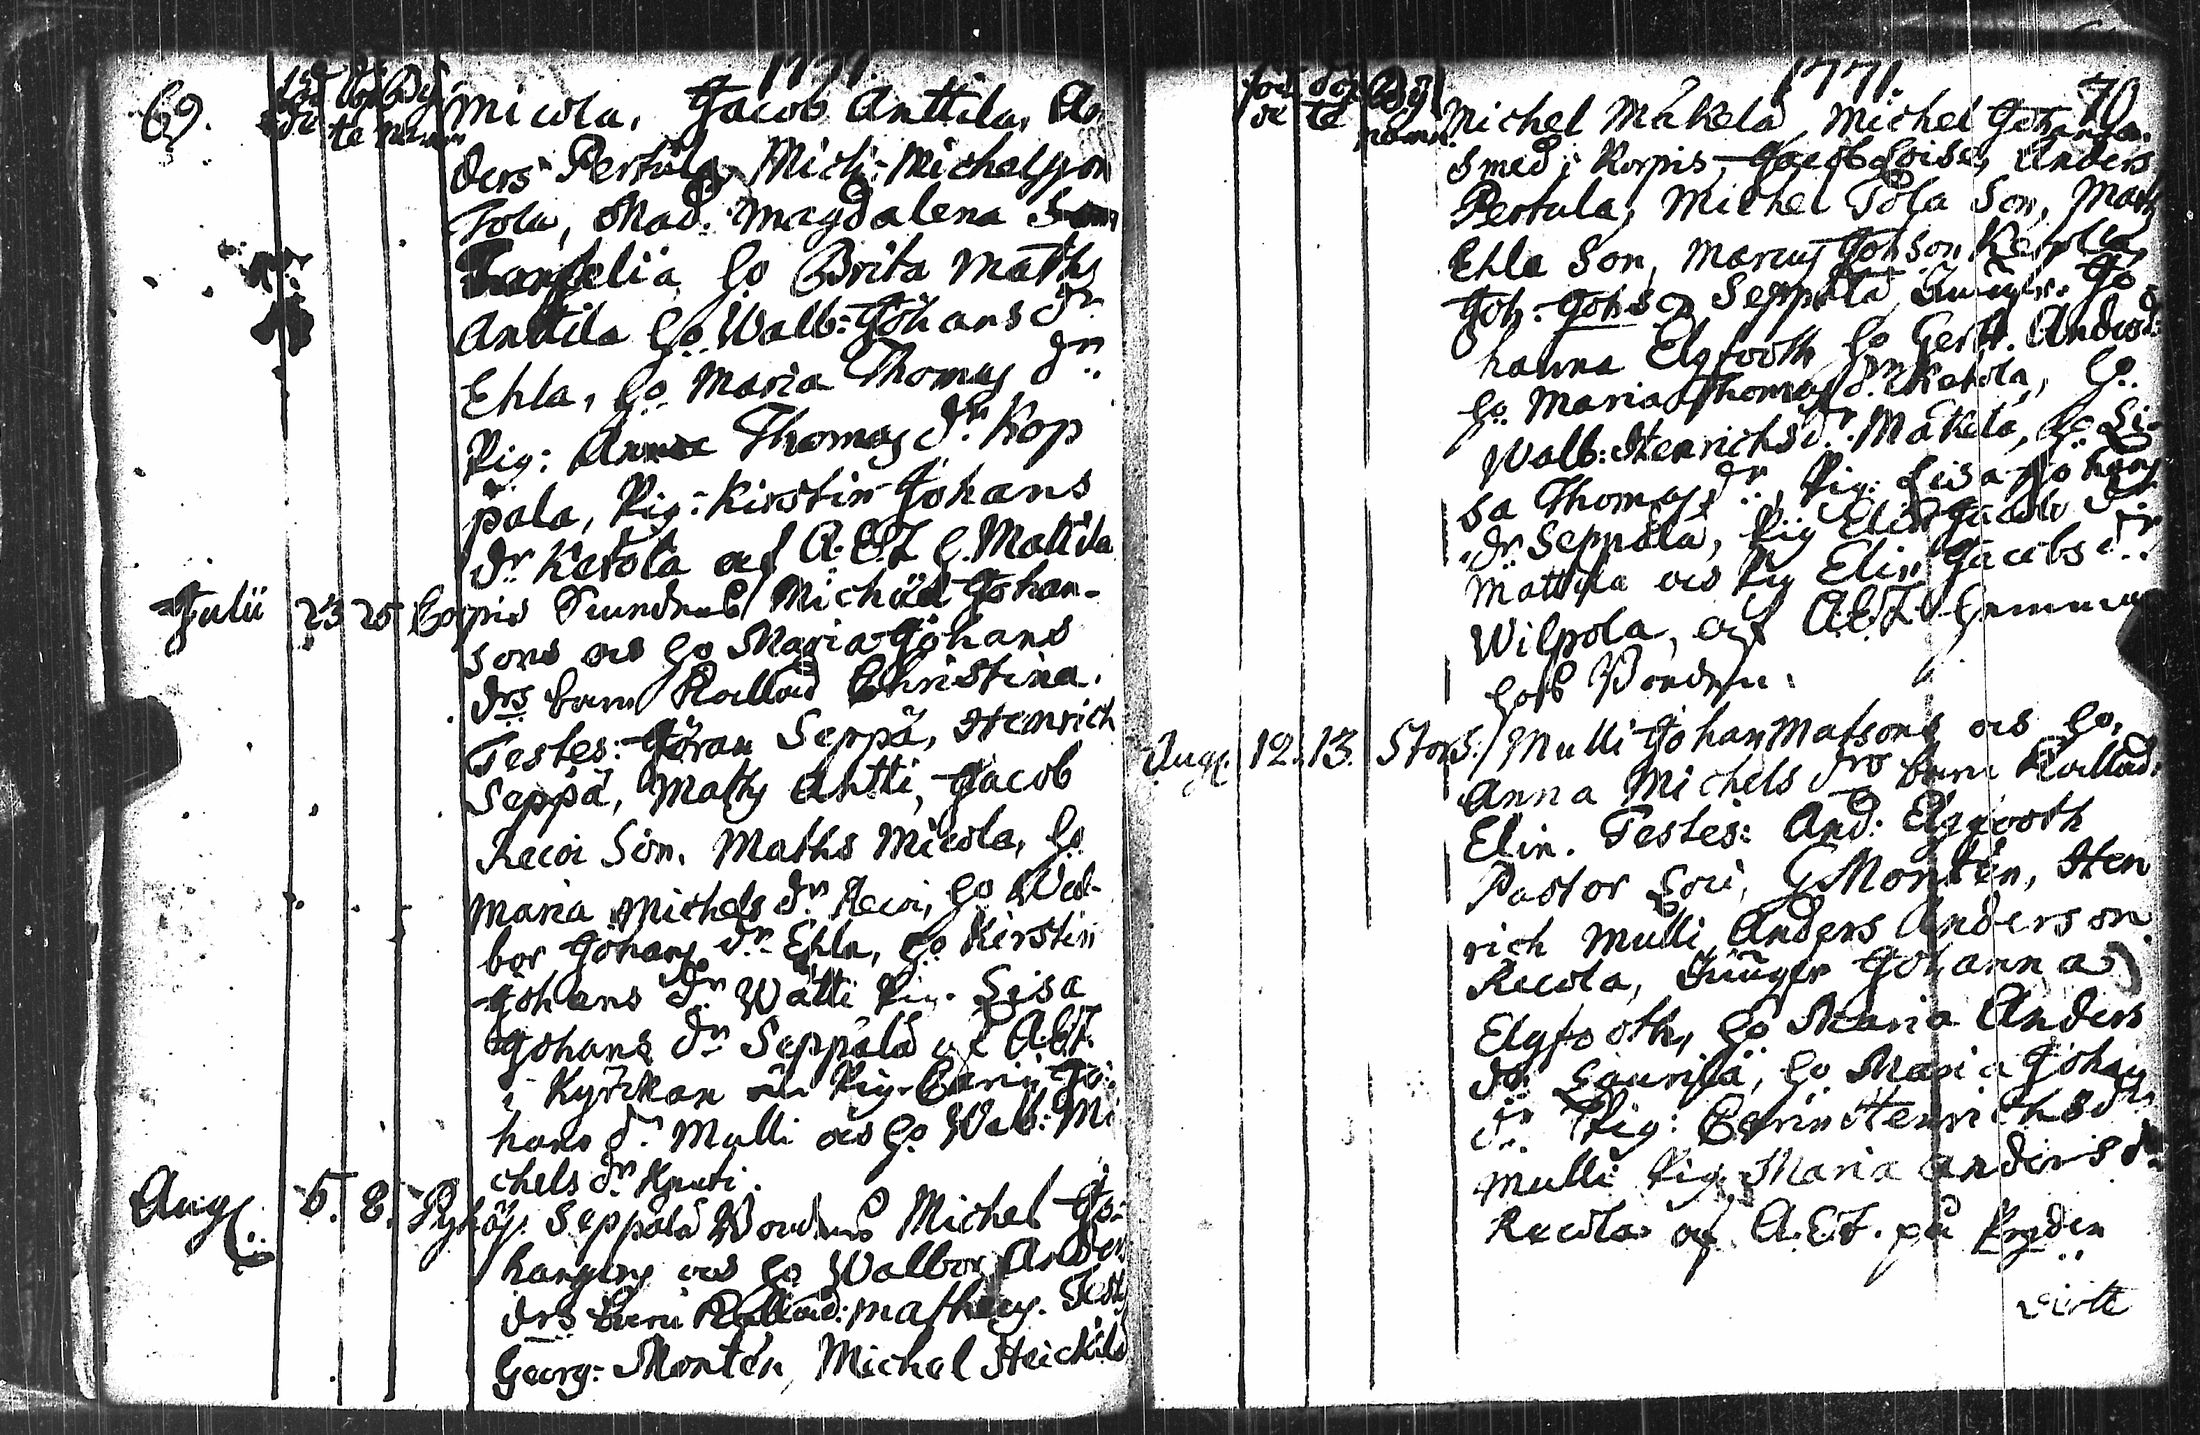 69.
1771
föd de
döp te
By namn
Micola, Jacob Anttila, An
ders Pertula, Mich: Michelsson
Tola, Mad. Magdalena
Forselia, Ho Brita Maths
Anttila Ho. Walb: Johans dr
Ehla, Ho Maria Thomas dr
Pig: Thomas dr Kop
pala, Pig: Kirstin Johans
dr Ketola af A. E. T. h. Mattila
Julii 23 25 Corpis Michäel Johan-
sons och Ho Maria Johans
drs barn Kallad Christina.
Testes: Göran Seppä, Henrich
Seppä, Maths Antti, Jacob
Recoi Son. Maths Micola, Ho
Maria Michels dr Recoi, Ho Wal-
bor Johans dr Ehla, Ho Kirstin
Johans dr Wätti Pig. Lisa
Johans dr Seppälä af A. E. T.
i Kyrckan Pig. Carin Jo-
hans dr Mulli och Ho Walb: Mi
chels dr Knuti.
Aug 5. 8. Pyhöj. Seppälä Bondens Michel Jo-
hansons och Ho Walbor Anders
drs barn Kallad: Matheus. Test
Georg: Montén, Michel Heickilä
1771.
70
föd de
döp te
By namn.
Michel Mäkelä, Michel Johansson
Smed i Korpis, Jacob Anders
Pertula, Michel Tola Son, Math
Ehla Son, Marcus Johson Kerola,
Joh: Johson Seppälä Jungfr. Jo
hanna Elgfooth Ho Gertr. Andersd:
Ho Maria Thomas dr Ketola, Ho.
Walb: Henrichs dr. Mäkelä, Ho Li-
sa Thomas dr, Pig: Lisa Johans
dr Seppälä, Pig Elin Jacobs dr
Mattila och Pig Elin Jacobs dr
Wilpola, af A. E. T. hemma
hos Bonden.
Aug. 12. 13. Stors./ Mulli Johan Matsons och Ho.
Anna Michels drs barn Kallad.
Elin. Testes: And: Elgfooth
Pastor Loci, G Montén, Hen
rich Mulli Anders Anderson
Recola, Jungfr Johanna
Elgfooth, Ho Maria Anders
dr Laurila, Ho Maria Johans
dr Pig: Carin Henrichs dr
Mulli Pig. Maria Anders dr
Recola af A. E. T. på